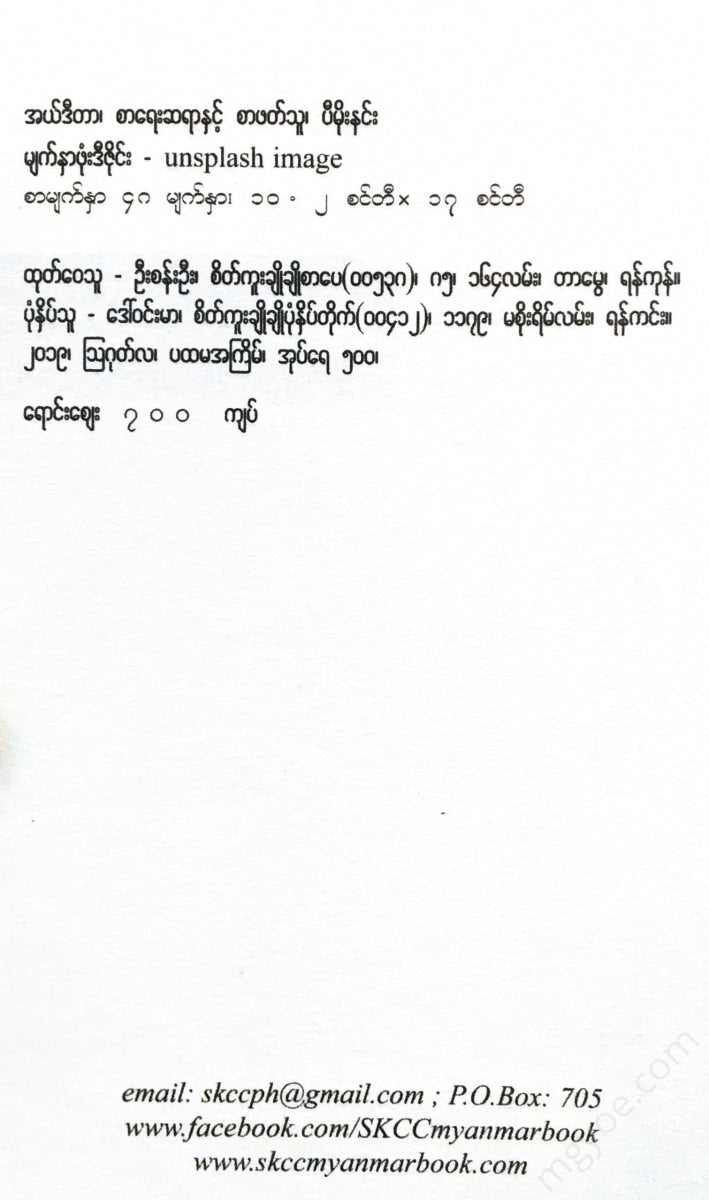 အယ်ဒီတာ၊ စာရေးဆရာနှင့် စာဖတ်သူ၊ ပီမိုးနင်း
မျက်နှာဖုံးဒီဇိုင်း - unsplash image
စာမျက်နှာ ၄၈ မျက်နှာ၊ ၁၀.၂ စင်တီ× ၁၇ စင်တီ
ထုတ်ဝေသူ - ဦးစန်းဦး၊ စိတ်ကူးချိုချိုစာပေ(၀၀၅၃၈)၊ ၈၅၊ ၁၆၄လမ်း၊ တာမွေ၊ ရန်ကုန်။
ပုံနှိပ်သူ - ဒေါ်ဝင်းမာ၊ စိတ်ကူးချိုချိုပုံနှိပ်တိုက်(၀၀၄၁၂)၊ ၁၁၇၉၊ မစိုးရိမ်လမ်း၊ ရန်ကင်း။
၂၀၁၉၊ ဩဂုတ်လ၊ ပထမအကြိမ်၊ အုပ်ရေ ၅၀၀၊
ရောင်းဈေး ၇၀၀ ကျပ်
email: skccph@gmail.com ; P.O.Box: 705
www.facebook.com/SKCCmyanmarbook
www.skccmyanmarbook.com
mgyoe.com